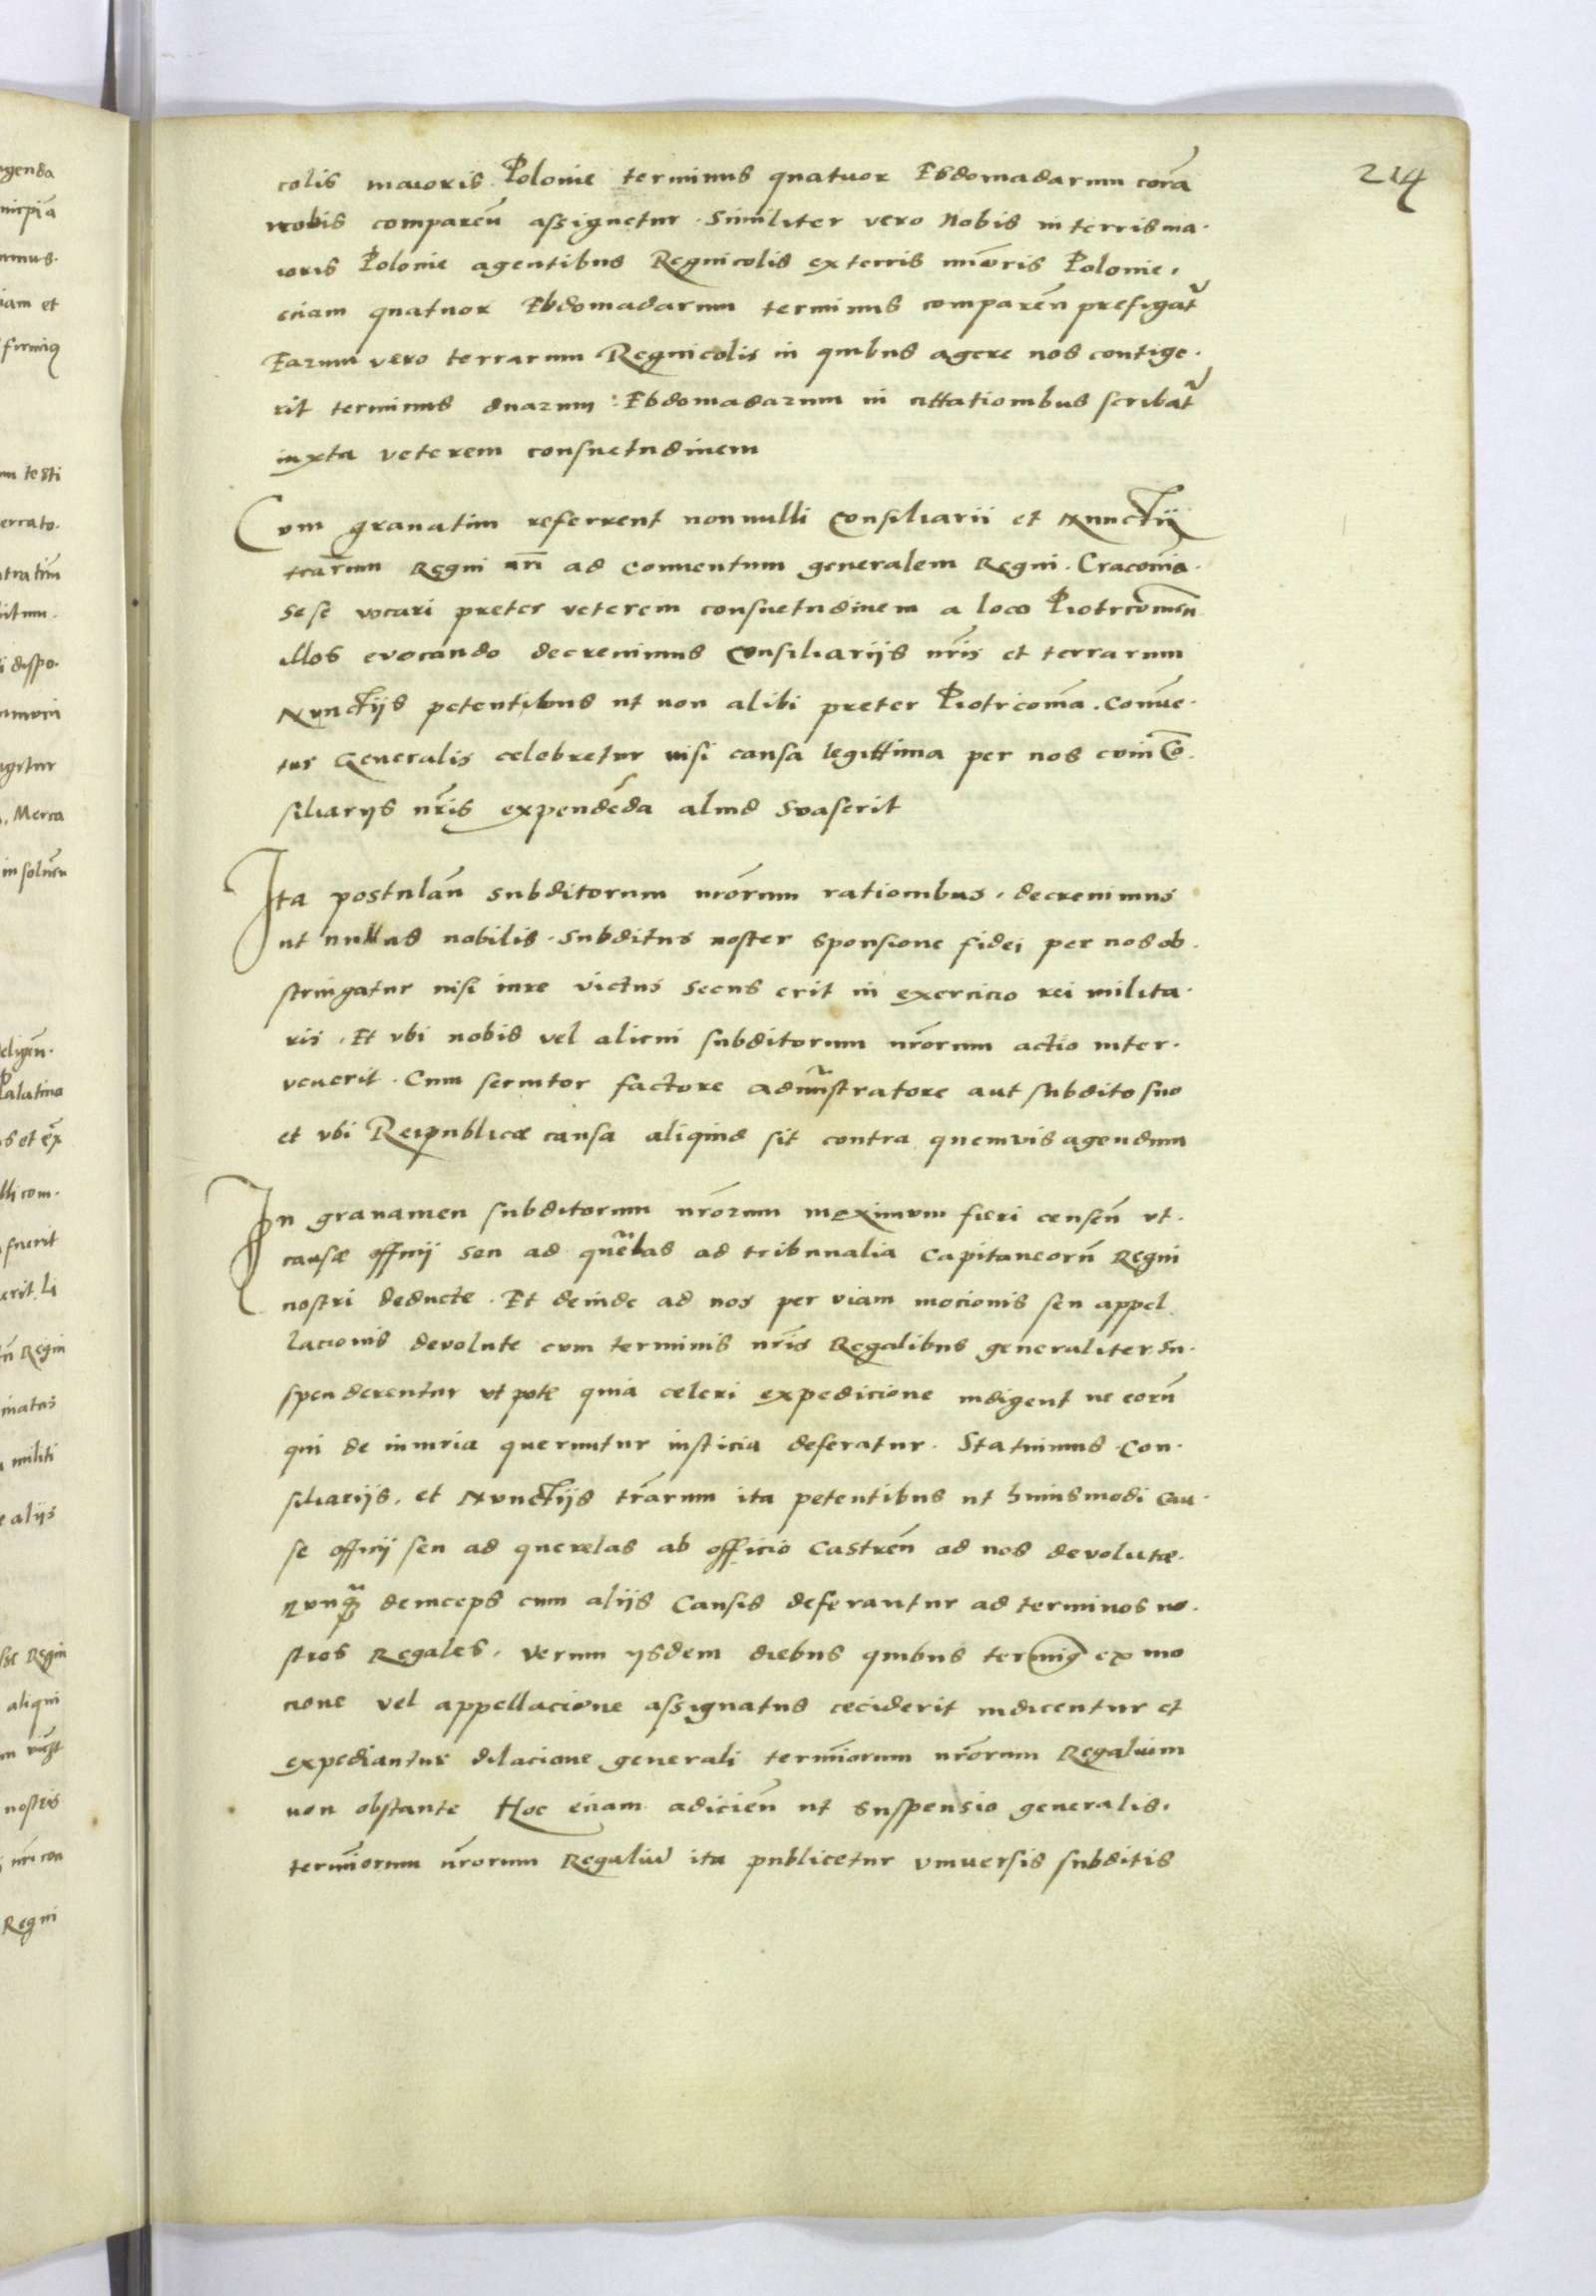 214
colis maioris Polonie terminus quatuor Ebdomadarum corā
nobis compareñ assignetur. Similiter vero Nobis in terris ma.
ioris Polonie agentibus Regnicolis ex terris mīoris Polonie,
eciam quatuor Ebdomadarum terminus compareñ prefigat᷑
Earum vero terrarum Regnicolis in quibus agere nos contige.
rit terminus duarum Ebdomadarum in cittationibus scribat᷑
iuxta veterem consuetudinem
Cum gravatim referrent nonnulli Consiliarii et Nunctii
tr̄arum Regni nr̄i ad Conventum generalem Regni. Cracoviā.
sese vocari preter veterem consuetudinem a loco Piotrcovień
illos evocando decrevimus Consiliariis nr̄is et terrarum
Nunctiis petentibus ut non alibi preter Piotrcoviā. Convē.
tus Generalis celebretur nisi causa legittima per nos cum Cō.
siliariis nr̄is expendēda aliud suaserit
Ita postulañ subditorum nr̄orum rationibus. decrevimus
ut nullus nobilis. subditus noster sponsione fidei per nos ob.
stringatur nisi iure victus secus erit in exercicio rei milita.
ris. Et ubi nobis vel alicui subditorum nr̄orum actio inter.
venerit. Cum servitor factore adm̄nstratore aut subdito suo
et ubi Reipublicæ causa aliquid sit contra quemvis agendum
In gravamen subditorum nr̄orum maximum fieri censeñ ut.
causæ officij seu ad querelas ad tribunalia Capitaneorū Regni
nostri deducte. Et deinde ad nos per viam mocionis seu appel
lacionis devolute cum terminis nr̄is Regalibus generaliter su.
spenderentur utpote quia celeri expedicione indigent ne eorū
qui de iniuria queruntur iusticia deferatur. Statuimus Con.
siliariis, et Nunctiis tr̄arum ita petentibus ut huiusmodi Cau.
se officij seu ad querelas ab officio Castreñ ad nos devolutæ.
nunq̃ȝ deinceps cum aliis Causis deferantur ad terminos no.
stros Regales, verum ijsdem diebus quibus terminꝯ ex mo
cione vel appellacione assignatus ceciderit iudicentur et
expediantur dilacione generali term̄iorum nr̄orum Regalium
non obstante Hoc eciam adicień ut suspensio generalis.
term̄iorum nr̄orum Regaliū ita publicetur universis subditis